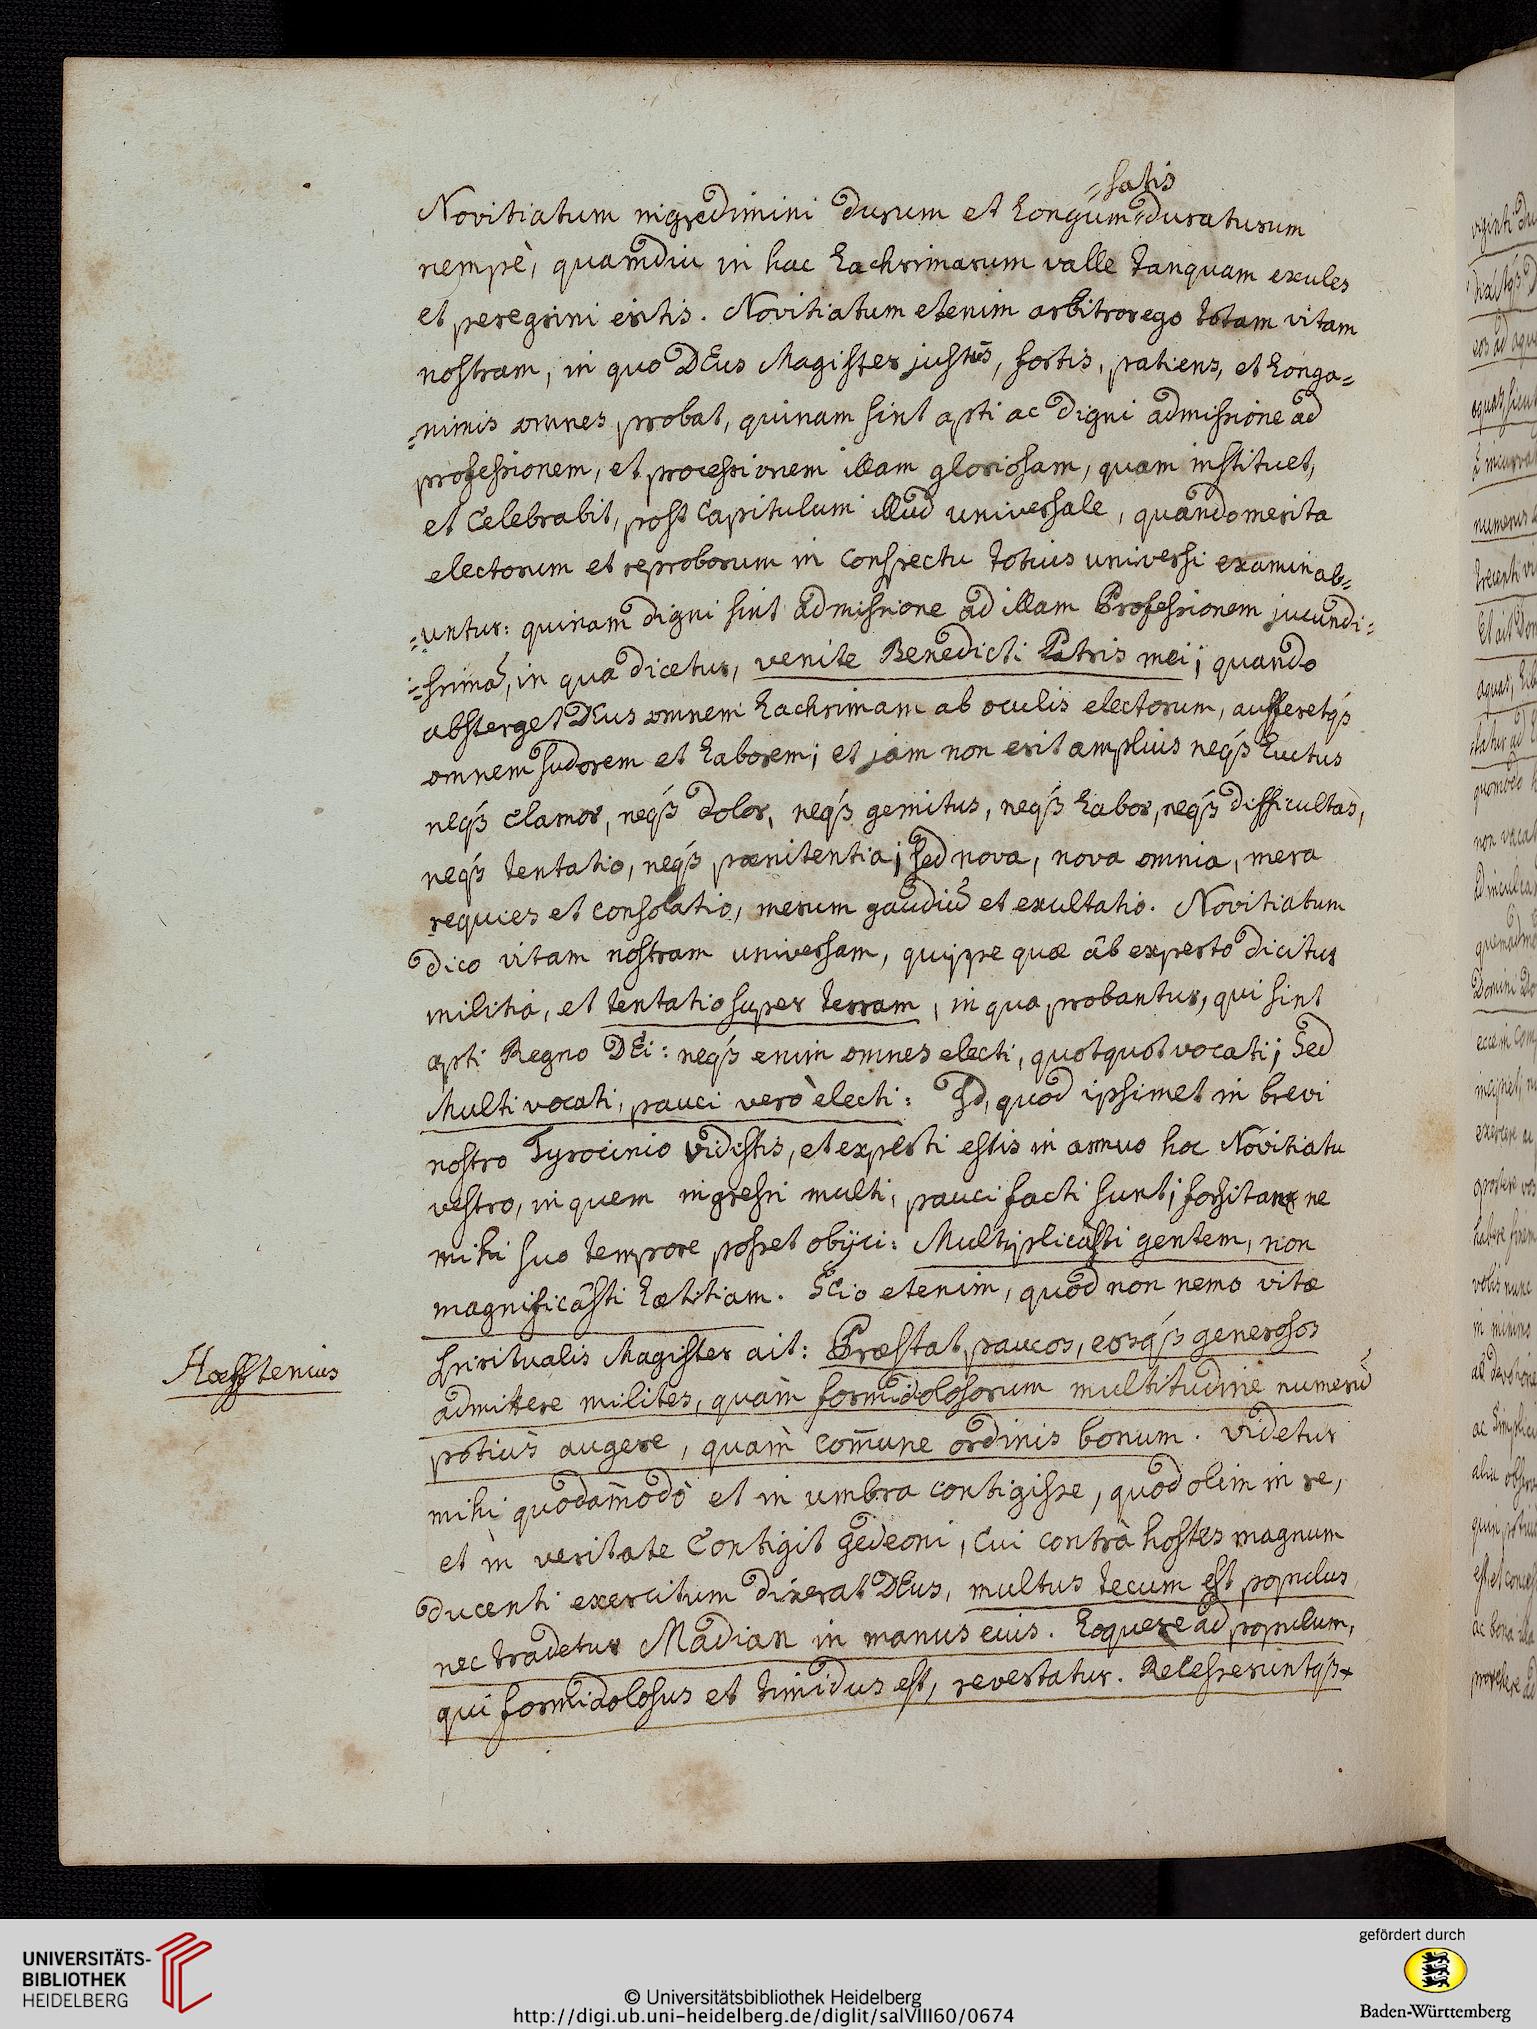 =satis
Novitiatum ingredimini durum et longum=duraturum
nempè, quamdiu in hac Lachrimarum valle tanquam exules
et peregrini eritis. Novitiatum etenim arbitror ego totam vitam
nostram, in quo DEus Magister justus, fortis, patiens, et Longa=
=nimis omnes probat, quinam sint apti ac digni admissione ad
professionem, et processionem illam gloriosam, quam instituet,
et Celebrabit, post Capitulum illud universale, quando merita
electorum et reproborum in conspectu totius universi examinab=
=untur: quinam digni sint admissione ad illam Professionem jucundi=
=ssimã, in qua dicetur, venite Benedicti Patris mei; quando
absterget DEus omnem Lachrimam ab oculis electorum, aufferetqꝫ
omnem sudorem et Laborem; et jam non erit amplius neqꝫ Luctus
neqꝫ clamor, neqꝫ dolor, neqꝫ gemitus, neqꝫ Labor, neqꝫ difficultas,
neqꝫ tentatio, neqꝫ pœnitentia; sed nova, nova omnia, mera
requies et consolatio, merum gaudiũ et exultatio. Novitiatum
dico vitam nostram universam, quippe quæ ab experto dicitur
militia, et tentatio super terram, in qua probantur, qui sint
apti Regno DEi: neqꝫ enim omnes electi, quotquot vocati; Sed
Multi vocati, pauci verò electi: Id, quod ipsimet in brevi
nostro Tyrocinio vidistis, et experti estis in annuo hoc Novitiatu
vestro, in quem ingressi multi, pauci facti sunt; forsitan ne
mihi suo tempore posset obijci: Multiplicasti gentem, non
magnificâsti Lætitiam. Scio etenim, quod non nemo vitæ
spiritualis Magister ait: Præstat, paucos, eosqꝫ generosos
Hoeffstenius
admittere milites, quàm formidolosorum multitudine numerũ
potiùs augere, quàm com̄une ordinis bonum. Videtur
mihi quodam̄odò et in umbra contigisse, quod olim in re,
et in veritate Contigit Gedeoni, Cui contrà hostes magnum
ducenti exercitum dixerat DEus, multus tecum est populus
nec tradetur Madian in manus eius. Loquere ad populum,
qui formidolosus et timidus est, revertatur. Recesseruntqꝫ
UNIVERSITÄTS-
BIBLIOTHEK
HEIDELBERG
© Universitätsbibliothek Heidelberg
http://digi.ub.uni-heidelberg.de/diglit/salVIII60/0674
gefördert durch
Baden-Württemberg